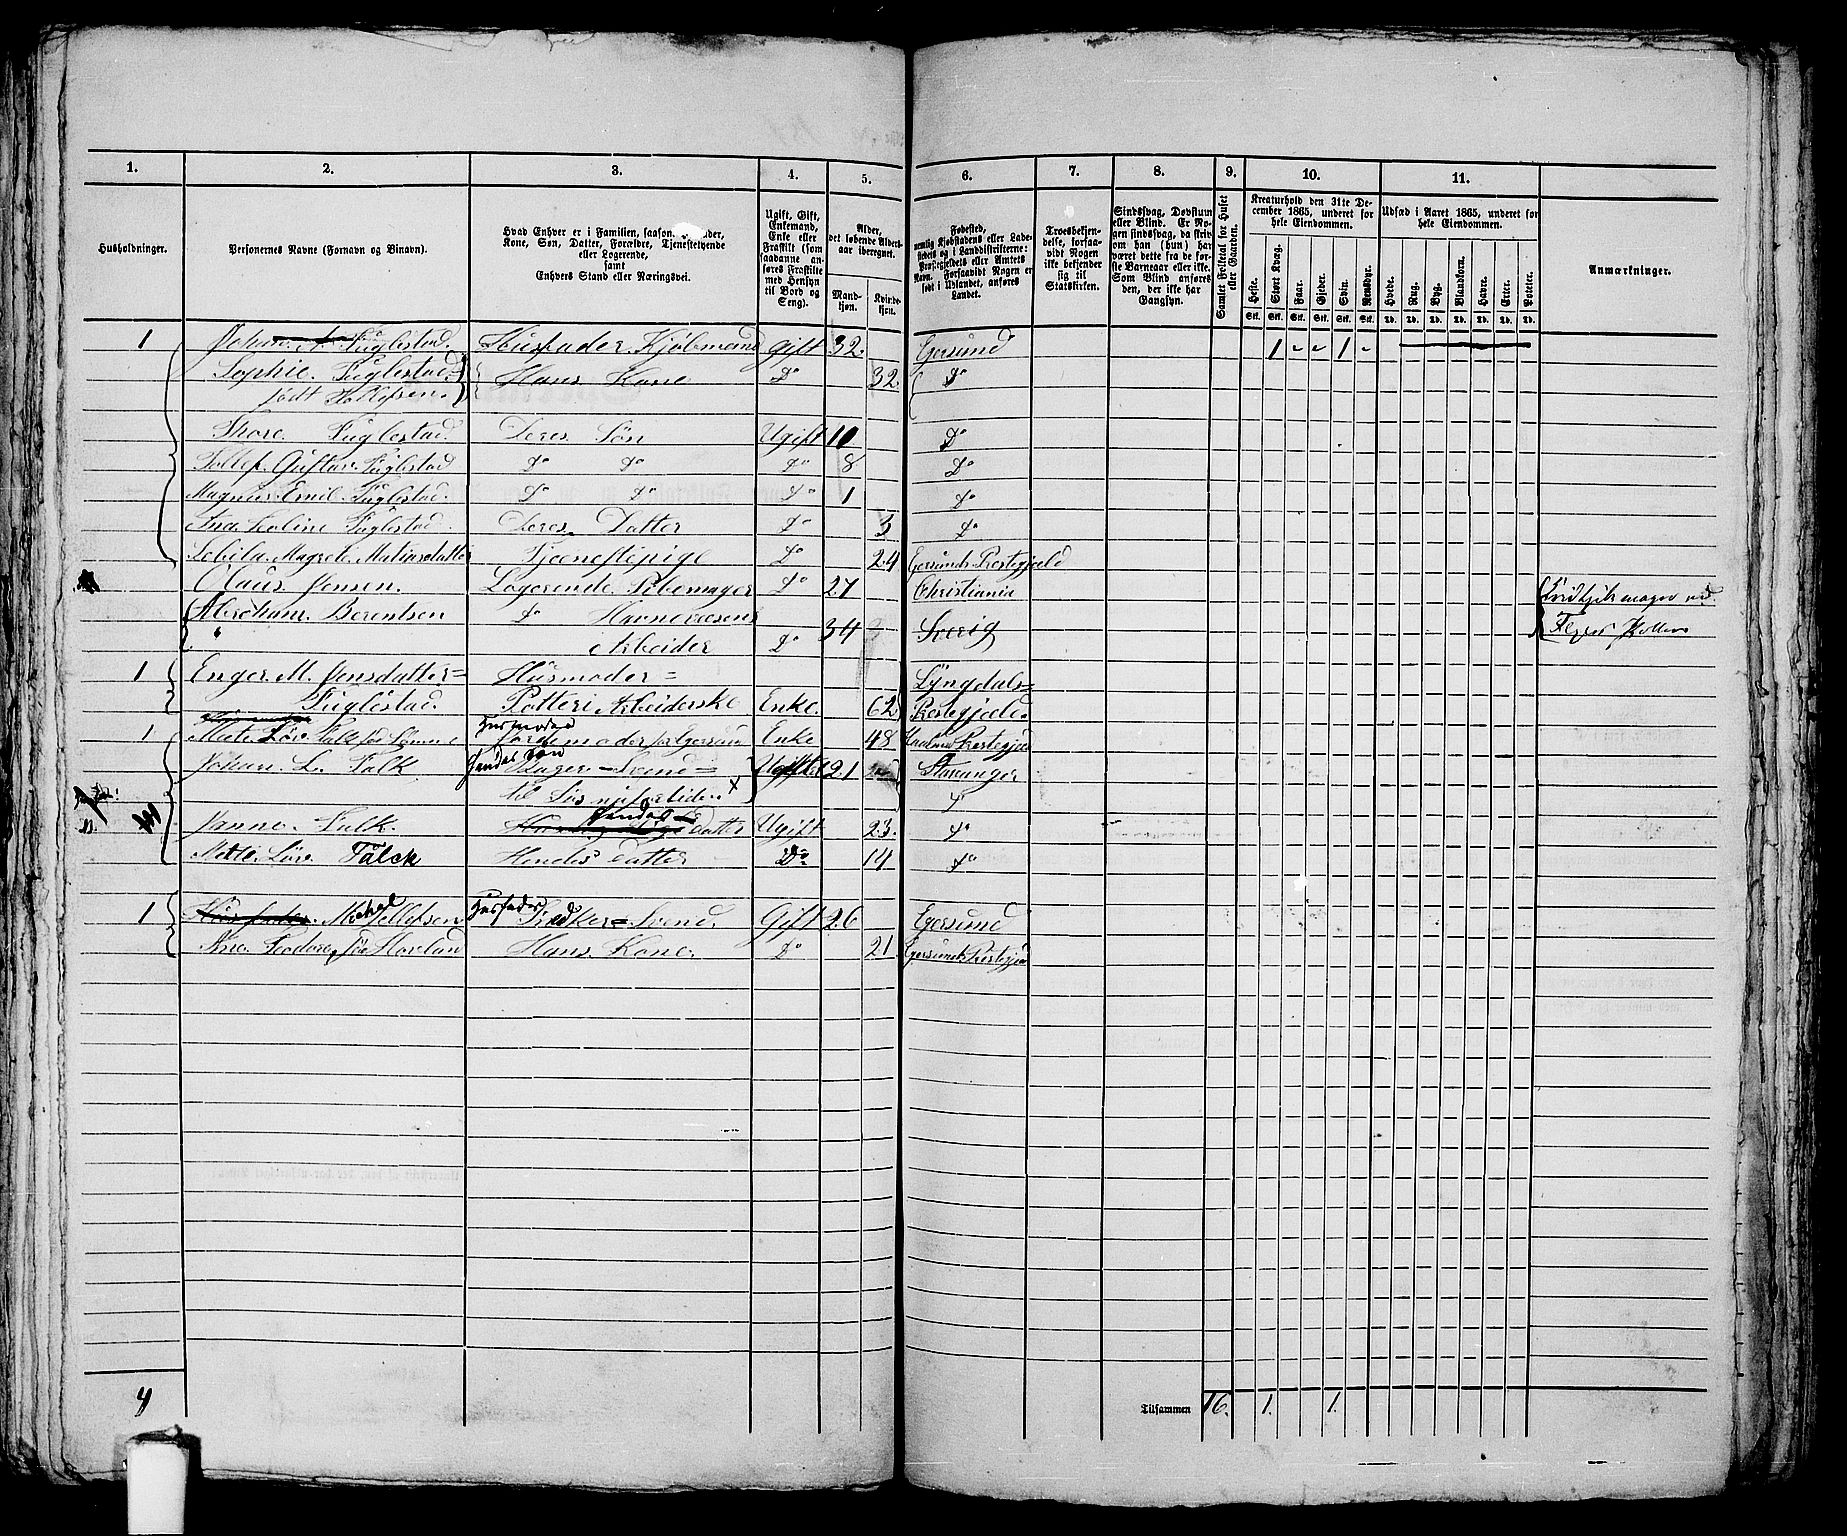 1. 2. 3. 4. 5. 6. 7. 8. 9. 10. 11.
Husholdninger.
Personernes Navne (Fornavn og Binavn).
Hvad Enhver er i Familien, saasom Fader,
Kone, Søn, Datter, Forældre, Tjenestetyende
eller Logerende,
samt
Enhvers Stand eller Næringsvei.
Ugift, Gift,
Enkemand,
Enke eller
Fraskilt (som
saadanne an-
føres Fraskilte
med Hensyn
til Bord og
Seng).
Alder,
det løbende Alders-
aar iberegnet.
Mand-
kjøn.
Kvinde-
kjøn.
Fødested,
nemlig Kjøbstadens eller Lade-
stedets og i Landdistrikterne:
Præstegjeldets eller Amtets
Navn. Forsaavidt Nogen er
født i Udlandet, anføres
Landet.
Troesbekjen-
delse, forsaa-
vidt Nogen
ikke bekjender
sig til
Statskirken.
Sindssvag, Døvstum
eller Blind. Er No-
gen sindssvag, da skriv
om han (hun) har
været dette fra de før-
ste Barneaar eller ikke.
Som Blind anføres
den, der ikke har
Gangsyn.
Samlet Folketal for Huset
eller Gaarden.
Kreaturhold den 31te De-
cember 1865, underet for
hele Eiendommen.
Heste. Stort Kvæg. Faar. Gjeder. Svin. Rensdyr.
Stk. Stk. Stk. Stk. Stk. Stk.
Udsæd i Aaret 1865, underet for
hele Eiendommen.
Hvede. Rug. Byg. Blandkorn. Havre. Erter. Poteter.
Td. Td. Td. Td. Td. Td. Td.
Anmærkninger.
1 Johan A. Fuglestad. Husfader. Kjøbmand gift 32. Egersund 1 - - 1 -
Sophie. Fuglestad Hans Kone Do 32 Do
født Tollefsen.
Thore. Fuglestad. Deres Søn Ugift 10 Do
Tollef. Gustav. Fuglestad Do Do Do 8 Do
Magnus. Emil. Fuglestad. Do Do Do 1 Do
Ina Loline Fuglestad. Deres Datter Do 3 Do
Magrete Matisdatter Tjænestepige Do 24 Egersunds Prestegjæld
Olaus Jensen. Logerende Do 27 Christiania
Abraham Berentsen Do Havnevæsens 34 Sverig
Arbeider Do
1 Enger. M. Jensdatter= Husmoder= Lyngdals=
Fuglestad. Potteri Arbeiderske Enke. 62 Prestegjæld.
1 Mete Lovise Falk Husmoder Jordemoder for Egersund Enke 48 Prestegjæld
Johan. L. Falk Hendes Søn Svend= 21 Stavanger
til Søs
Do
Janne. Falk. Hendes Datter Ugift 23. Do
Mette. Falck Hendes Datter Do 14 Do
1 Husfader. Michal Tollefsen Husfader Svend. Gift 26 Egersund
Ane Teodore Hovland Hans. Kone. Do 21 Egersunds Prestegjæld
4 Tilsammen 16. 1. 1.